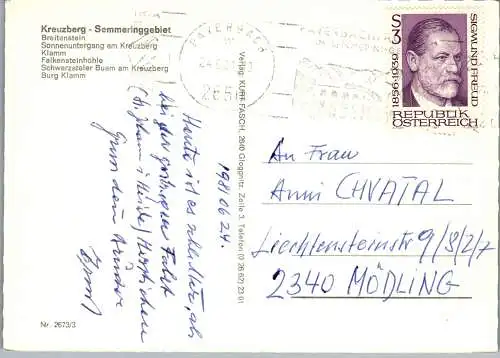 Kreuzberg - Semmeringgebiet
Breitenstein
Sonnenuntergang am Kreuzberg
Klamm
Falkensteinhöhle
Schwarzataler Buam am Kreuzberg
Burg Klamm
PAYERBACH
2650
S3
SIGMUND FREUD
1856-1939
REPUBLIK
ÖSTERREICH
Verlag: KURT FASCH, 2640 Gloggnitz, Zeile 3, Telefon (0 26 62) 23 01
1981 06 24.
Heute ist es schlechter, als
bei der gestrigen Fahrt
Herzlichen
An Frau
Anni CHVATAL
Liechtensteinstr 9/3/2/7
2340 MÖDLING
Nr. 2673/3